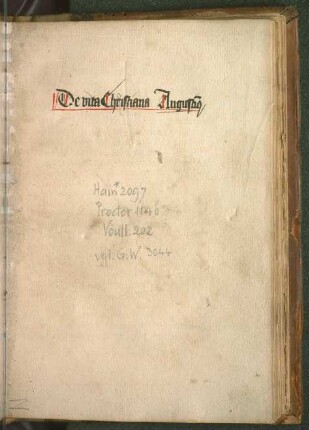 De vita Christiana Augustini
Hain* 2097
Proctor 1146
Voull. 202
vgl. G.W. 3044